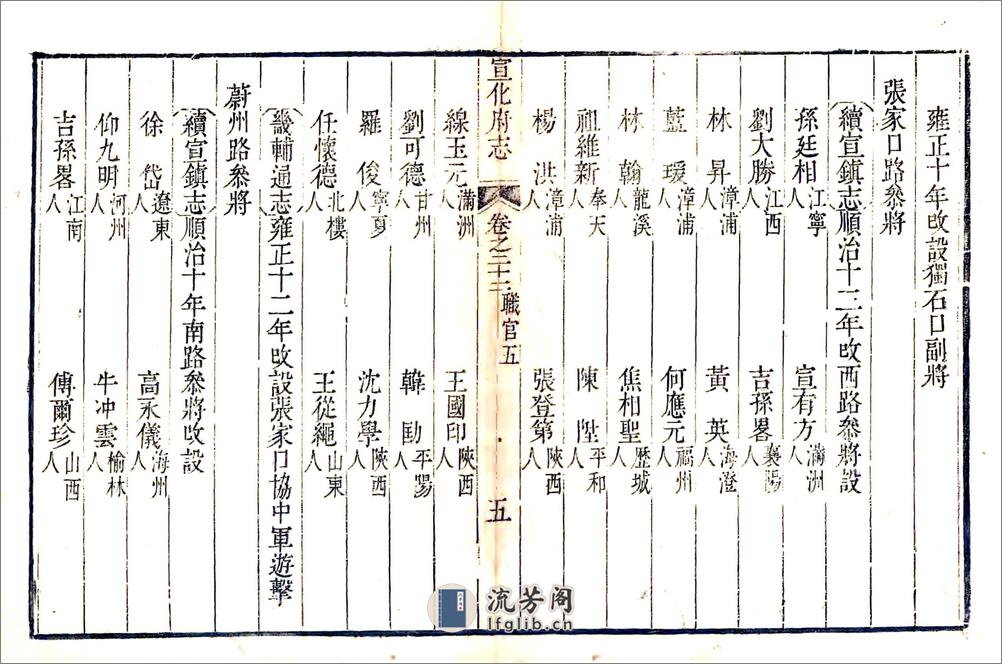 雍正十年改設獨石口副將
張家口路參將
續宣鎮志順治十三年改西路參將設
孫廷相江寧人 宣有方滿洲人
劉大勝江西人 吉孫畧襄陽人
林昇漳浦人 黃英海澄人
藍瑗漳浦人 何應元福州人
林翰龍溪人 焦相聖歷城人
祖維新奉天人 陳陞平和人
楊洪漳浦人 張登第陝西人
宣化府志 卷之二十二 職官五 五
線玉元滿洲人 王國印陝西人
劉可德甘州人 韓勛平陽人
羅俊寧夏人 沈力學陝西人
任懷德北樓人 王從繩山東人
畿輔通志雍正十二年改設張家口協中軍遊擊
蔚州路參將
續宣鎮志順治十年南路參將改設
徐岱遼東人 高永儀海州人
仰九明河州人 牛冲雲榆林人
吉孫畧江南人 傅爾珍山西人
流芳阁
lfglib.cn